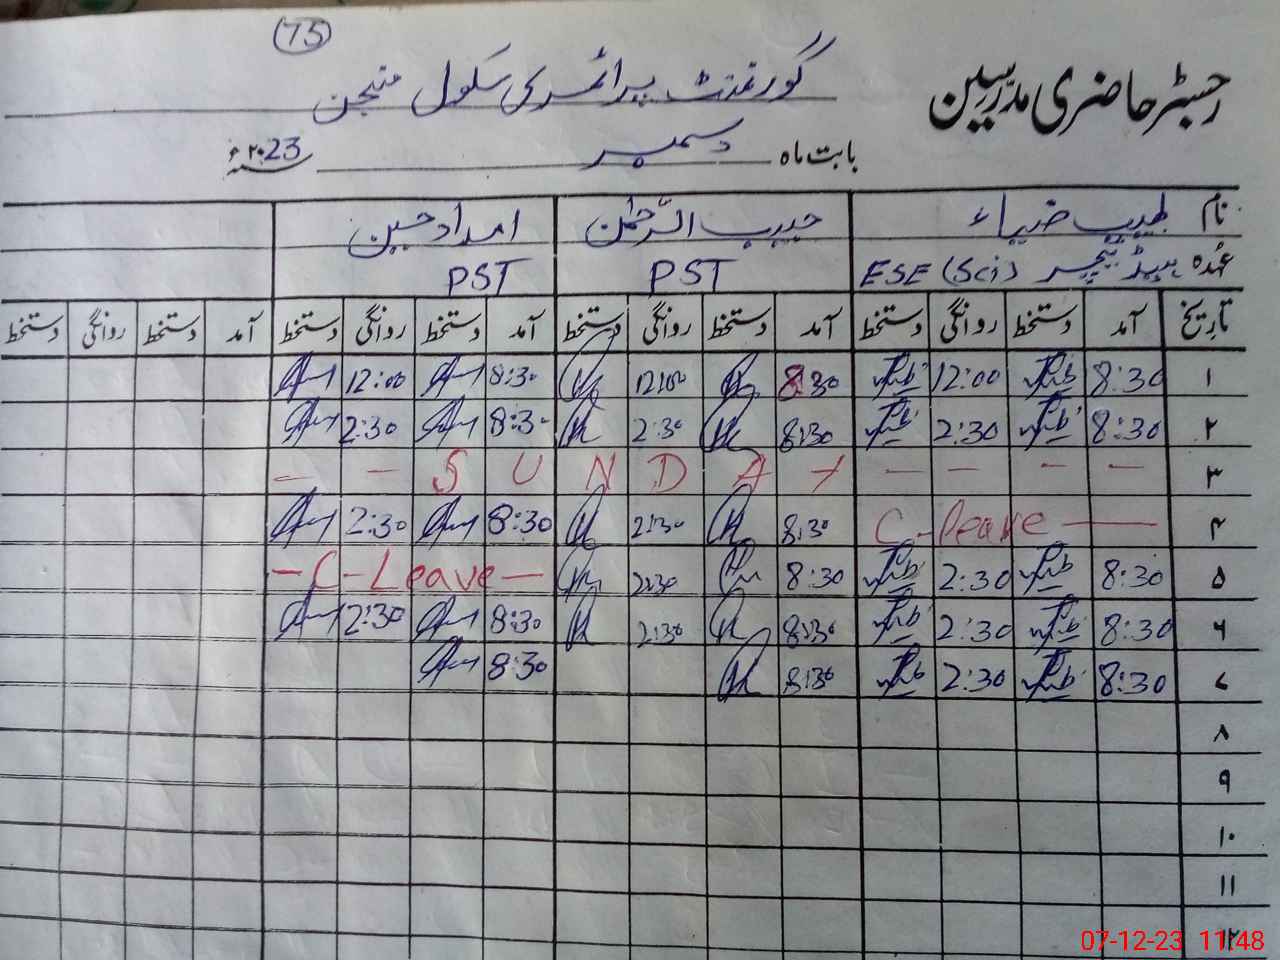 75
رجسٹر حاضری مدرسین گورنمنٹ پرائمری سکول منجن
بابت ماہ دسمبر سنہ ۲۰23ء
نام طیب ضیاء حبیب الرحمٰن امداد حسین
عہدہ ہیڈ ٹیچر ESE (Sci) PST PST
تاریخ آمد دستخط روانگی دستخط آمد دستخط روانگی دستخط آمد دستخط روانگی دستخط آمد دستخط روانگی دستخط
۱ 8:30 12:00 8:30 12:00 8:30 12:00
۲ 8:30 2:30 8:30 2:30 8:30 2:30
۳ - - - - S U N D A Y - -
۴ C-leave — 8:30 2:30 8:30 2:30
۵ 8:30 2:30 8:30 2:30 - C - Leave —
۶ 8:30 2:30 8:30 2:30 8:30 2:30
۷ 8:30 2:30 8:30 8:30
۸
۹
۱۰
۱۱
۱۲
07-12-23 11:48